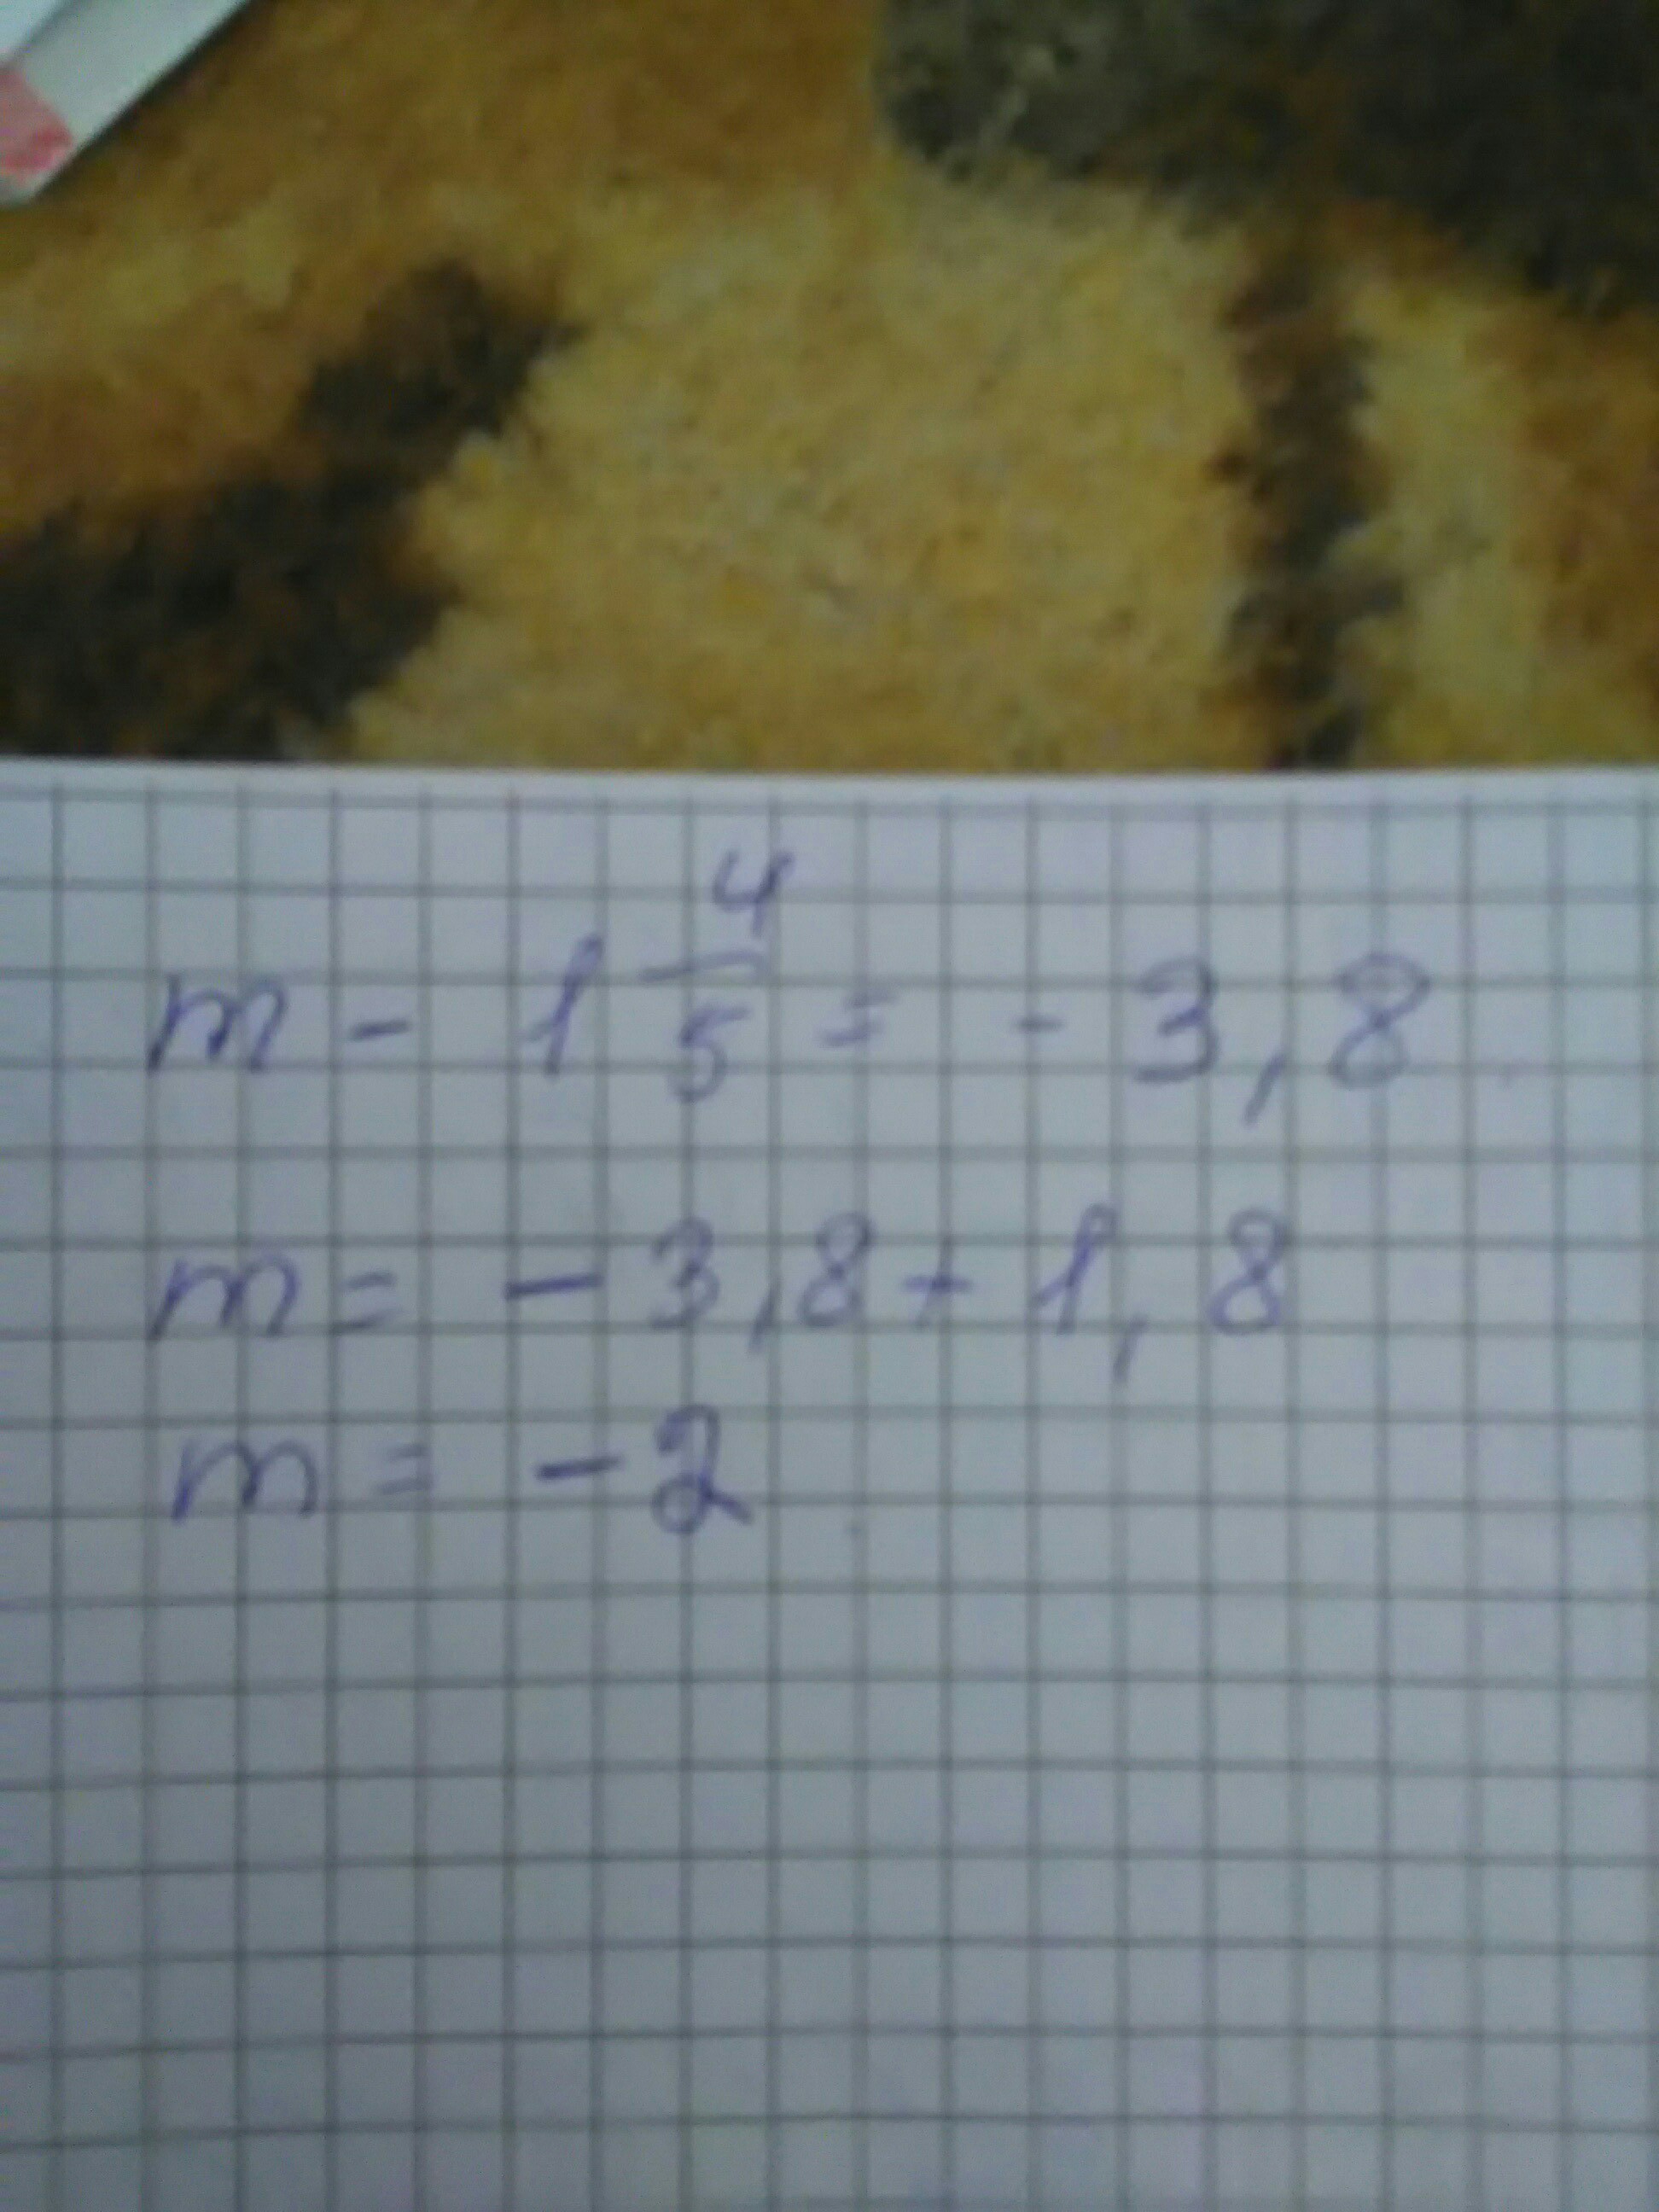 m - 1 4/5 = - 3,8
m = - 3,8 + 1,8
m = - 2